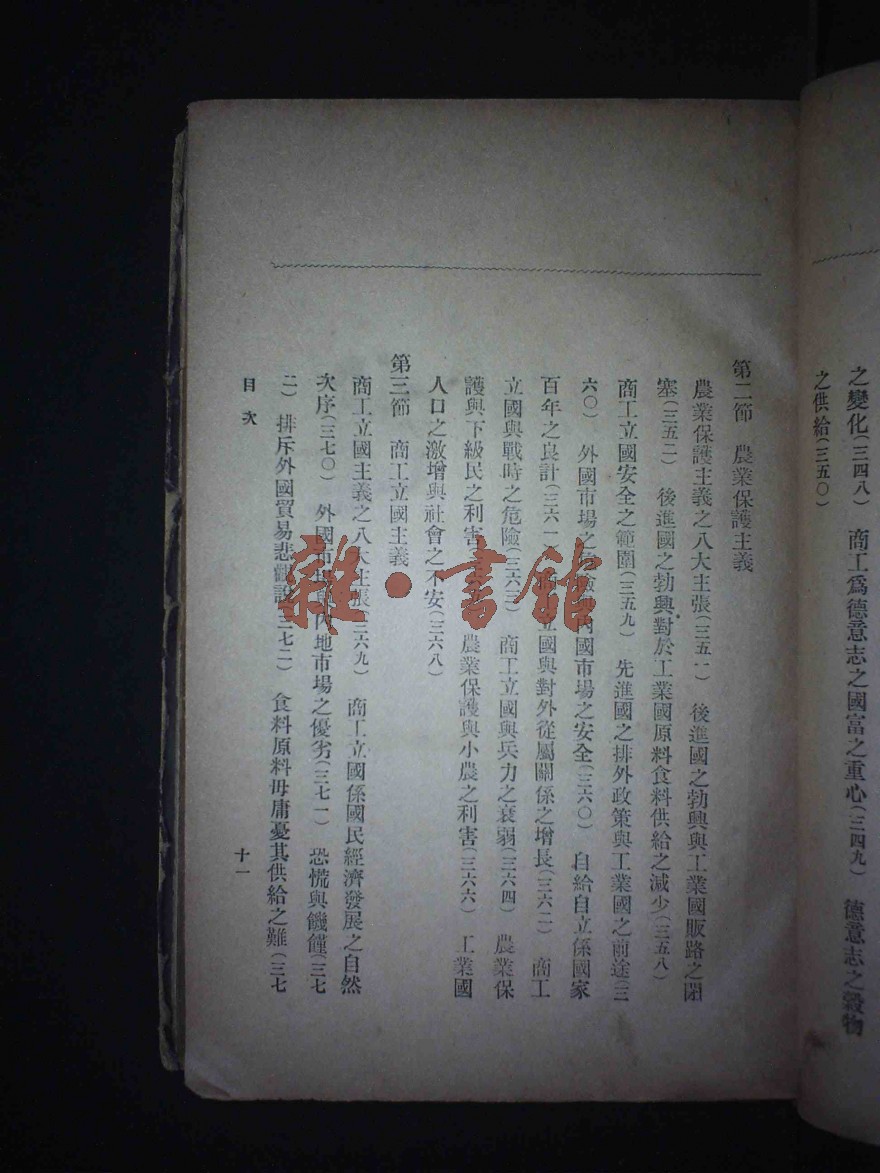 之變化(三四八)　商工爲德意志之國富之重心(三四九)　德意志之穀物
之供給(三五〇)
第二節　農業保護主義
農業保護主義之八大主張(三五一)　後進國之勃興與工業國販路之閉
塞(三五二)　後進國之勃興對於工業國原料食料供給之減少(三五八)
商工立國安全之範圍(三五九)　先進國之排外政策與工業國之前途(三
六〇)　外國市場之危險　內國市場之安全(三六〇)　自給自立係國家
百年之良計(三六一　立國與對外從屬關係之增長(三六二)　商工
立國與戰時之危險(三六三)　商工立國與兵力之衰弱(三六四)　農業保
護與下級民之利害　農業保護與小農之利害(三六六)　工業國
人口之激增與社會之不安(三六八)
第三節　商工立國主義
商工立國主義之八大主張(三六九)　商工立國係國民經濟發展之自然
次序(三七〇)　外國市場與內地市場之優劣(三七一)　恐慌與饑饉(三七
二)　排斥外國貿易悲觀說(三七二)　食料原料毋庸憂其供給之難(三七
目次
十一
雜·書館